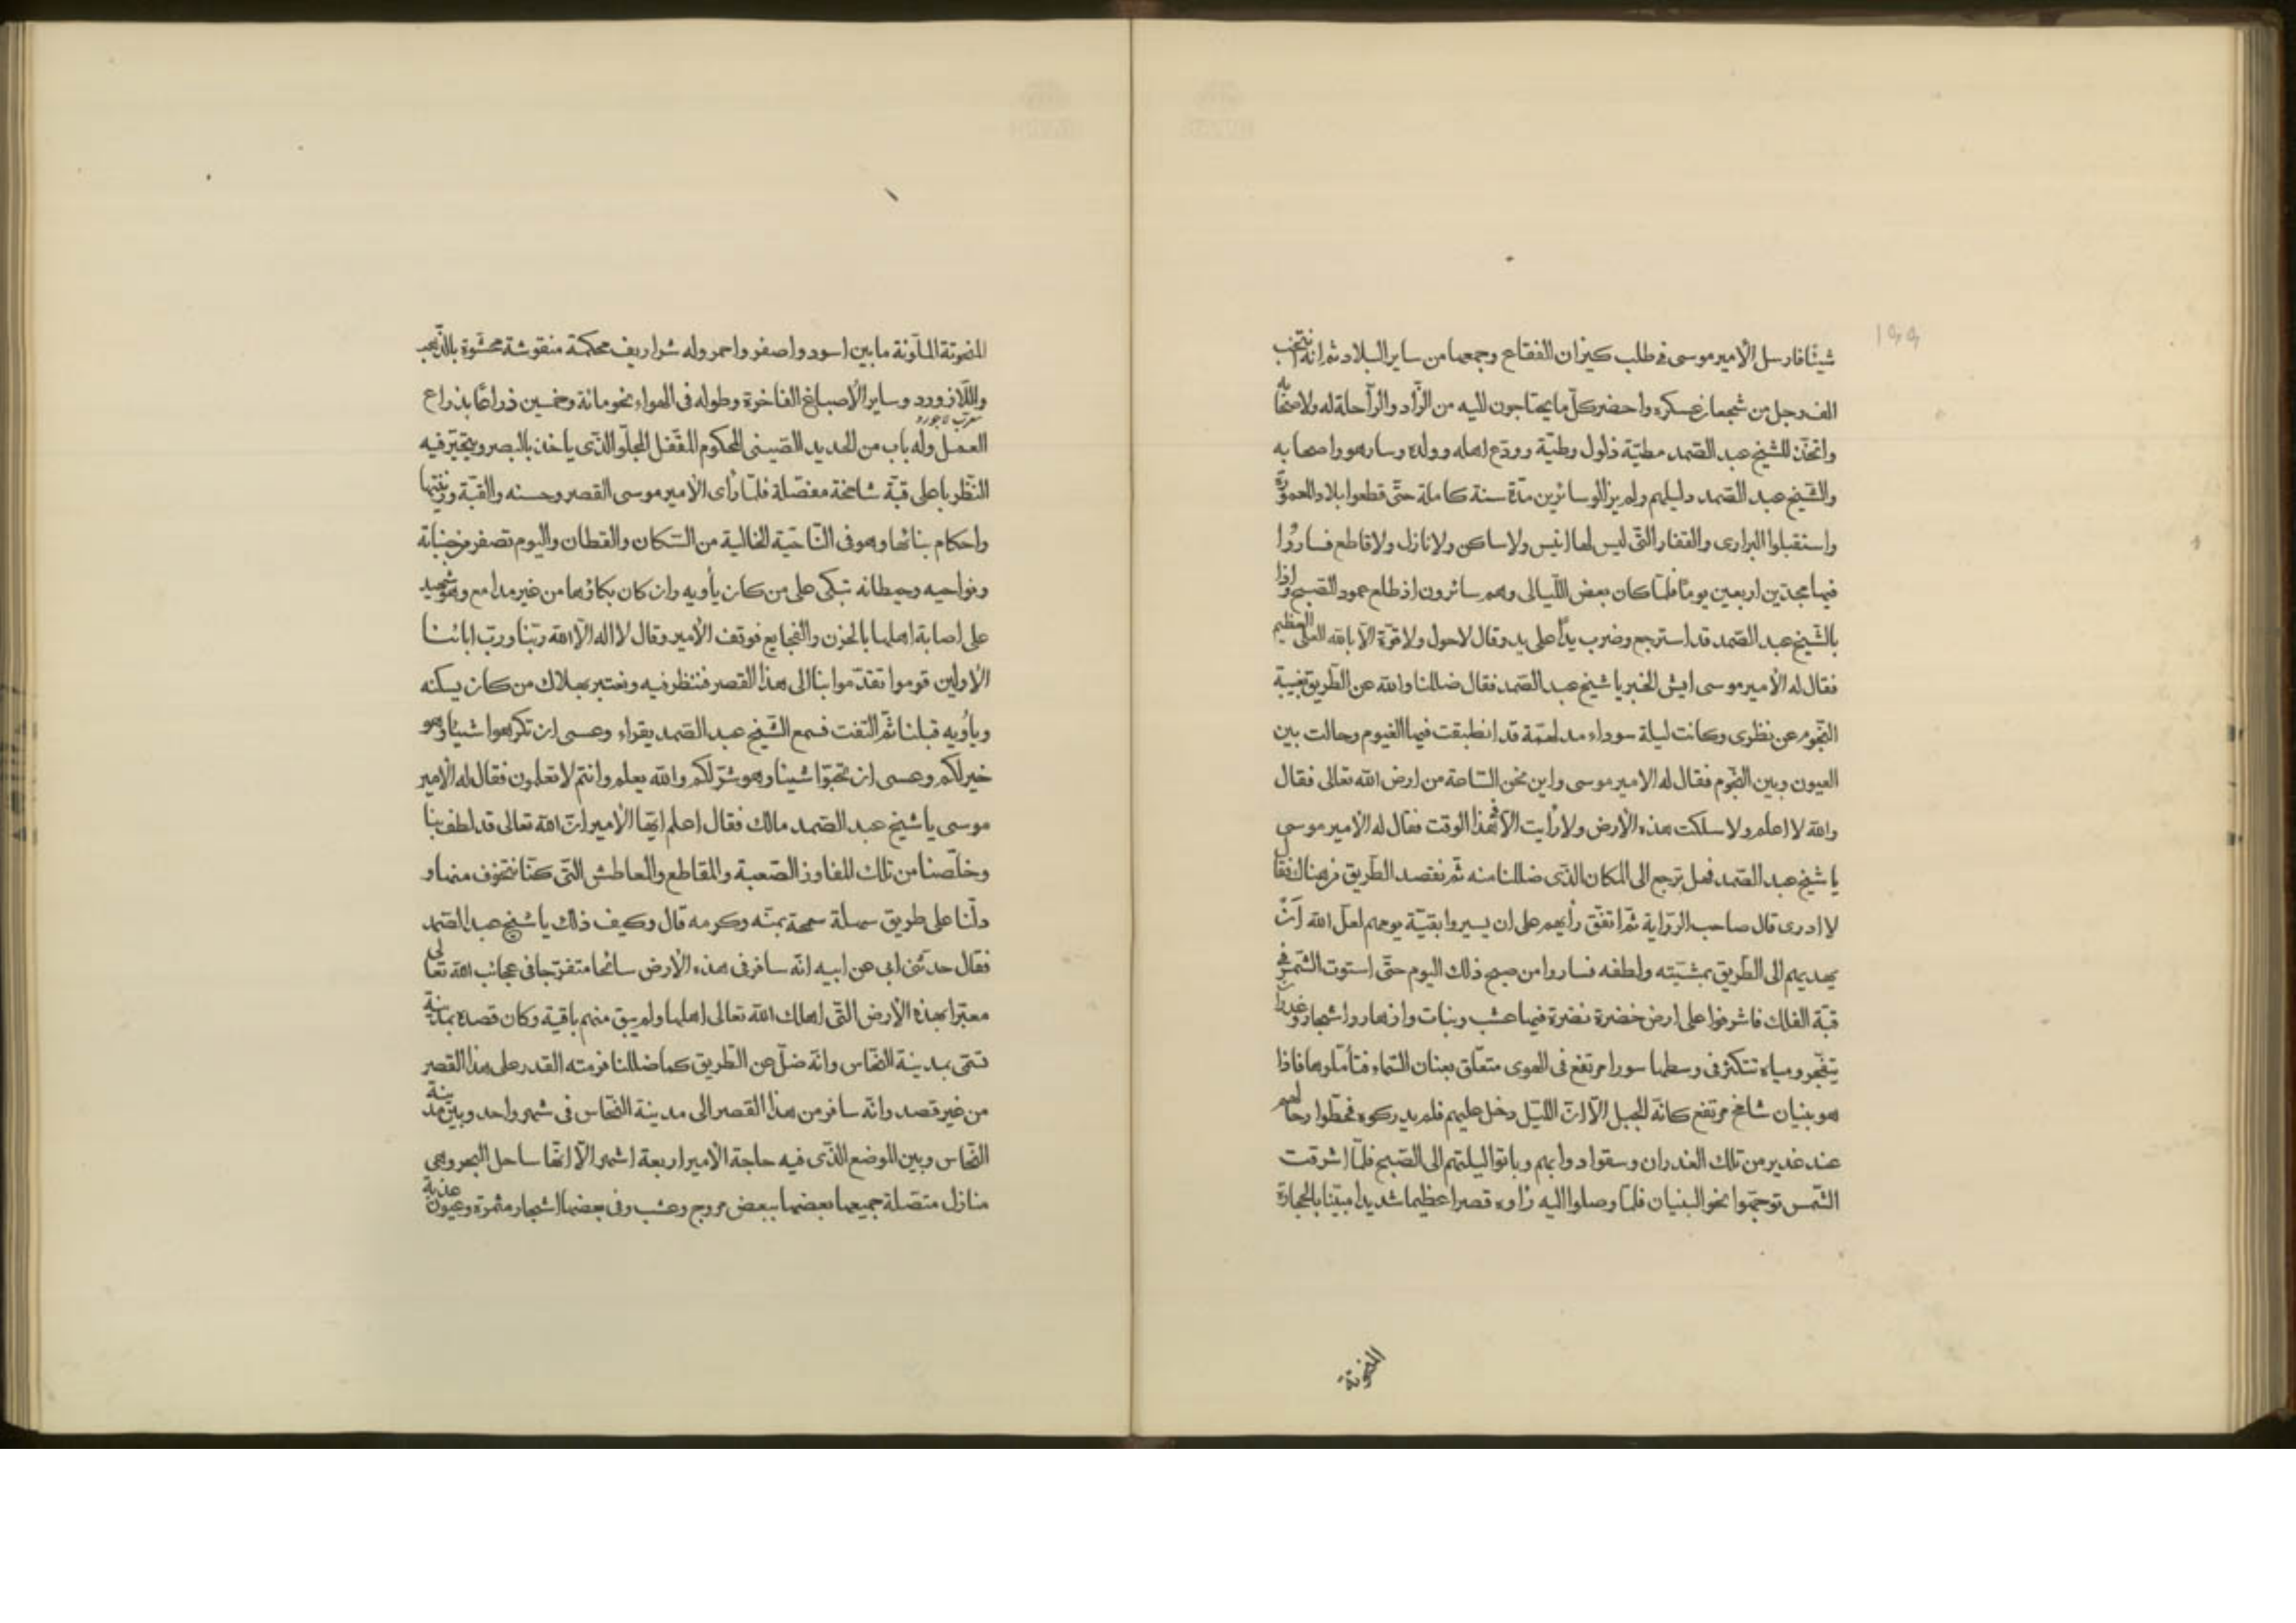 ١٩٩
شيئًا فارسل الأمير موسى في طلب كيزان الفقاع وجمعها من ساير البلاد ثم انه انتخب
الف رجل من شجعان عسكره واحضر كلّ ما يحتاجون اليه من الزّاد والرّاحلة له ولاصحابه
واتخذ للشيخ عبد الصّمد مطيّة ذلول وطيّة وودّع اهله وولده وسار هو واصحابه
والشّيخ عبد الصّمد دليلهم ولم يزالوسائرين مدّة سنة كاملة حتّى قطعوا بلاد العمورة
واستقبلوا البرارى والقفار التّى ليس لها انيس ولا ساكن ولا نازل ولا قاطع فساروا
فيها مجدّين اربعين يومًا فلمّا كان بعض اللّيالى وهم سائرون اذ طلع عمود الصّبح واذا
بالشّيخ عبد الصّمد قد استرجع وضرب يدًا على يد وقال لا حول ولا قوّة الّا بالله العلى العظيم
فقال له الأمير موسى ايش الخبر يا شيخ عبد الصّمد فقال ضللنا والله عن الطّريق بغيبة
النّجوم عن نظرى وكانت ليلة سوداء مدلهمّة قد انطبقت فيها الغيوم وحالت بين
العيون وبين النّجوم فقال له الامير موسى واين نحن السّاعة من ارض الله تعالى فقال
والله لا اعلم ولا سلكت هذه الأرض ولا رأيت الّا في هذا الوقت فقال له الأمير موسى
يا شيخ عبد الصّمد فهل ترجع الى المكان الذّى ضللنا منه ثمّ نقصد الطّريق من هناك فقال
لا ادرى قال صاحب الرّواية ثمّ اتفق رأيهم على ان يسيروا بقيّة يومهم لعلّ الله أنّ
يهديهم الى الطّريق بمشيّته ولطفه فساروا من صبح ذلك اليوم حتّى استوت الشّمس في
قبّة الفلك فاشرفوا على ارض خضرة نضرة فيها عشب ونبات وازهار واشجار وغدران
يتفجّر ومياه تتكثر فى وسطها سورا مرتفع فى الهوى متعلّق بعنان السّماء فتأمّلوها فاذا
هو بنيان شامخ مرتفع كانّه الجبل الّا انّ اللّيل دخل عليهم فلم يدركوه فحطّوا رحالهم
عند غدير من تلك الغدران وسقوا دوابهم وباتوا ليلتهم الى الصّبح فلمّا اشرقت
الشّمس توجّهوا نحو البنيان فلمّا وصلوا اليه رأوه قصرا عظيما شديدا مبنيّا بالحجارة
المنحوتة
المنحوتة الملوّنة ما بين اسود واصفر واحمر وله شراريف محكمة منقوشة محشّوة بالذّهب
واللّازورد وساير الأصباغ الفاخرة وطوله فى الهواء نحو مائة وخمسين ذراعًا بذراع
معرّب لاجورد
العمل وله باب من الحديد الصّينى المحكوم المقفل المجلّو الذّى ياخذ بالبصر ويتحيّر فيه
النّظر باعلى قبّة شامخة مفصّلة فلمّا رأى الأمير موسى القصر وحسنه والقبّة وزينتها
واحكام بنائها وهو فى النّاحية الخالية من السّكان والقطان واليوم تصفر من جنباته
ونواحيه وحيطانه تبكى على من كان يأويه وان كان بكاؤها من غير مدامع وهو شهيد
على اصابة اهلها بالحزن والفجايع فوقف الأمير وقال لا اله الّا الله ربّنا وربّ ابائنا
الأولين قوموا تقدّموا بنا الى هذا القصر فننظر فيه ونعتبر بهلاك من كان يسكنه
ويأويه قبلنا ثمّ التفت فسمع الشّيخ عبد الصّمد يقراء وعسى ان تكرهوا شيئا وهو
خير لكم وعسى ان تحبّوا شيئا وهو شرّ لكم والله يعلم وانتم لا تعلمون فقال له الأمير
موسى يا شيخ عبد الصّمد مالك فقال اعلم ايّها الأمير انّ الله تعالى قد لطف بنا
وخلّصنا من تلك المفاوز الصّعبة والمقاطع والمعاطش التّى كنّا نتخوف منها و
دلّنا على طريق سهلة سمحة بمنّه وكرمه قال وكيف ذلك يا شيخ عبد الصّمد
فقال حدثنى ابى عن ابيه انّه سافر فى هذه الأرض سائحا متفرّجا فى عجائب الله تعالى
معتبرا بهذه الأرض التّى اهلك الله تعالى اهلها ولم يبق منهم باقية وكان قصده بمدينة
تسمّى بمدينة النّحاس وانّه ضلّ عن الطّريق كما ضللنا فرمته القدر على هذا القصر
من غير قصد وانّه سافر من هذا القصر الى مدينة النّحاس فى شهر واحد وبين مدينة
النّحاس وبين الموضع الذّى فيه حاجة الأمير اربعة اشهر الّا انّها ساحل البحر وهى
منازل متصّلة جميعها بعضها ببعض مروج وعشب وفى بعضها اشجار مثمرة وعيون عذبة